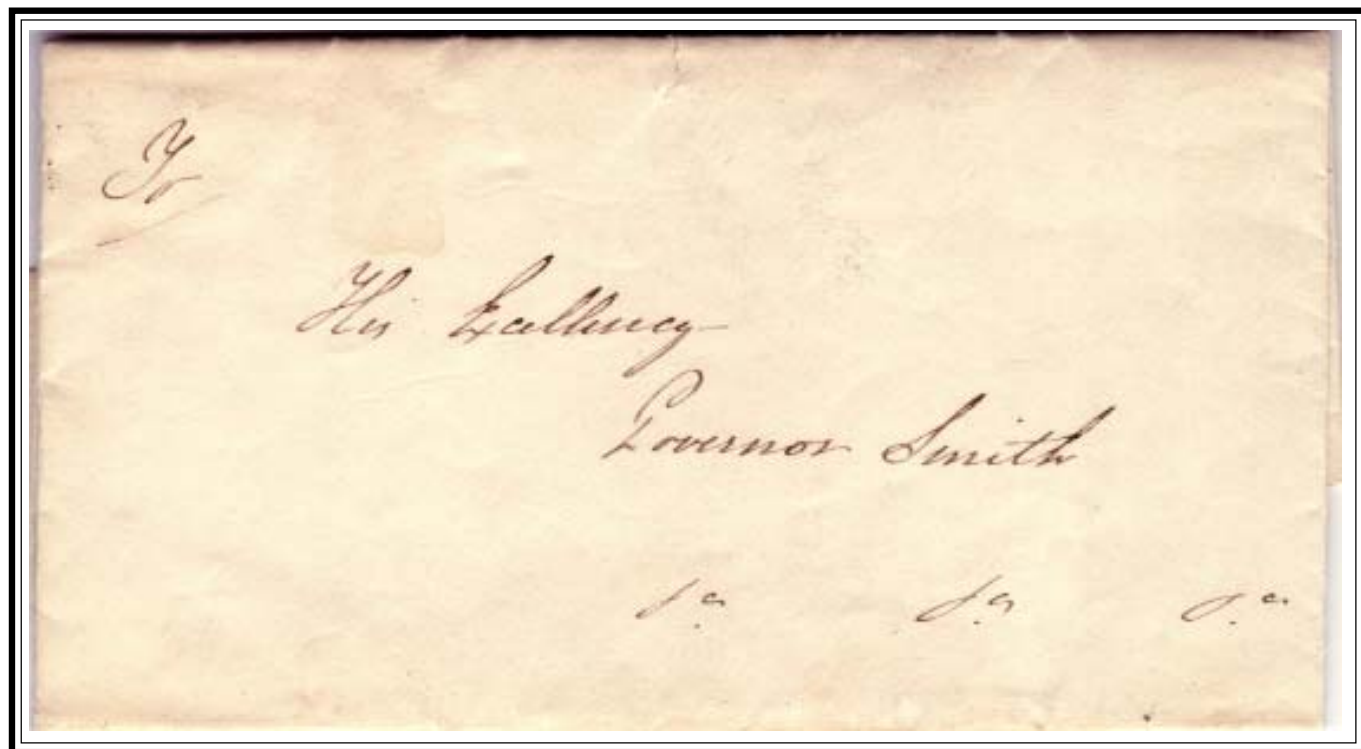 To
His Excellency
Governor Smith